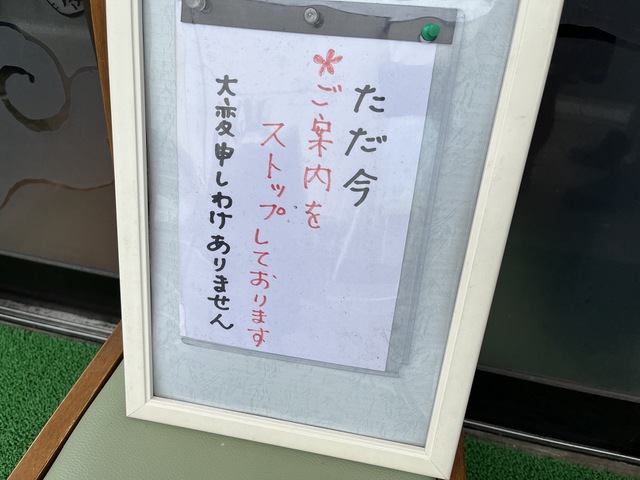 ただ今
*ご案内を
ストップしております
大変申しわけありません